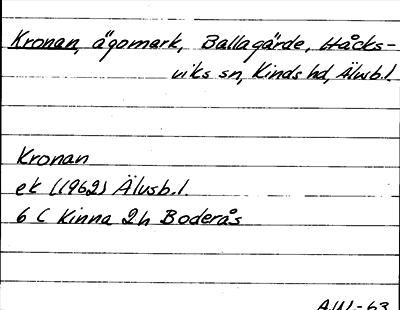 Kronan, ägomark, Ballagärde, Håcks-
viks sn, Kinds hd, Älvsb.l.
Kronan
ek (1962) Älvsb.l.
6 C Kinna 2h Boderås